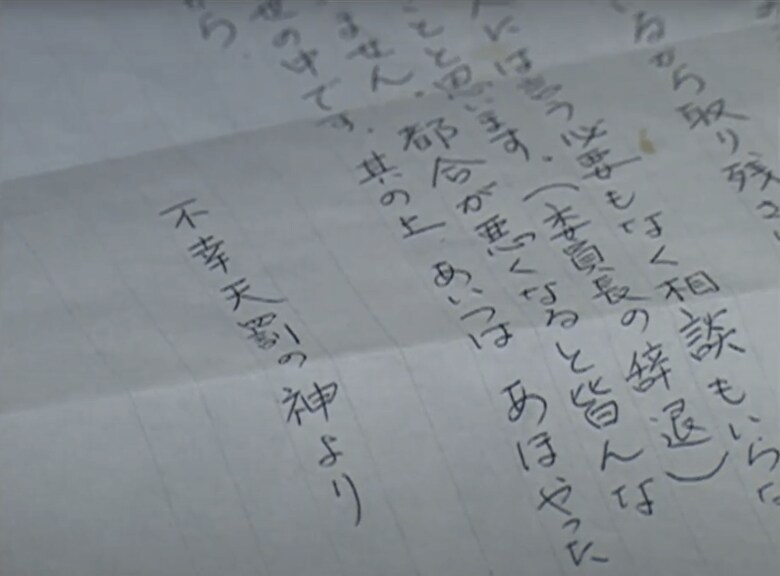 るから取り残さ
には言う必要もなく相談もいらな
とと思います。(委員長の辞退)
ません。都合が悪くなると皆んな
世の中です。其の上 あいつは あほやった
から
不幸天罰の神より